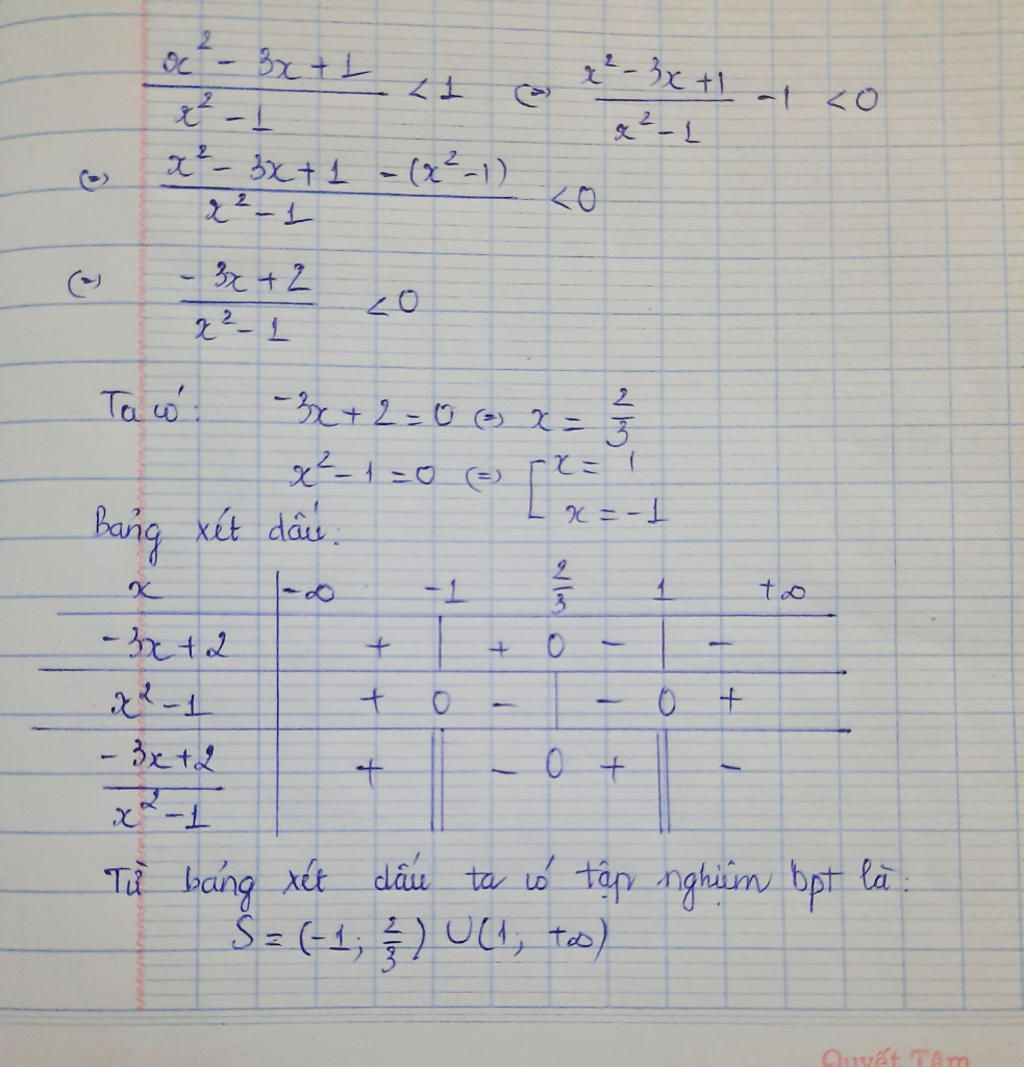 x² - 3x + 1 / x² - 1 < 1 (=) x² - 3x + 1 / x² - 1 - 1 < 0
(=) x² - 3x + 1 - (x² - 1) / x² - 1 < 0
(=) - 3x + 2 / x² - 1 < 0
Ta có: -3x + 2 = 0 (=) x = 2/3
x² - 1 = 0 (=) [ x = 1
x = -1
Bảng xét dấu:
x | -∞ -1 2/3 1 +∞
-3x + 2 | + | + 0 - | -
x² - 1 | + 0 - | - 0 +
- 3x + 2 / x² - 1 | + || - 0 + || -
Từ bảng xét dấu ta có tập nghiệm bpt là:
S = (-1; 2/3) ∪ (1; +∞)
Quyết Tâm